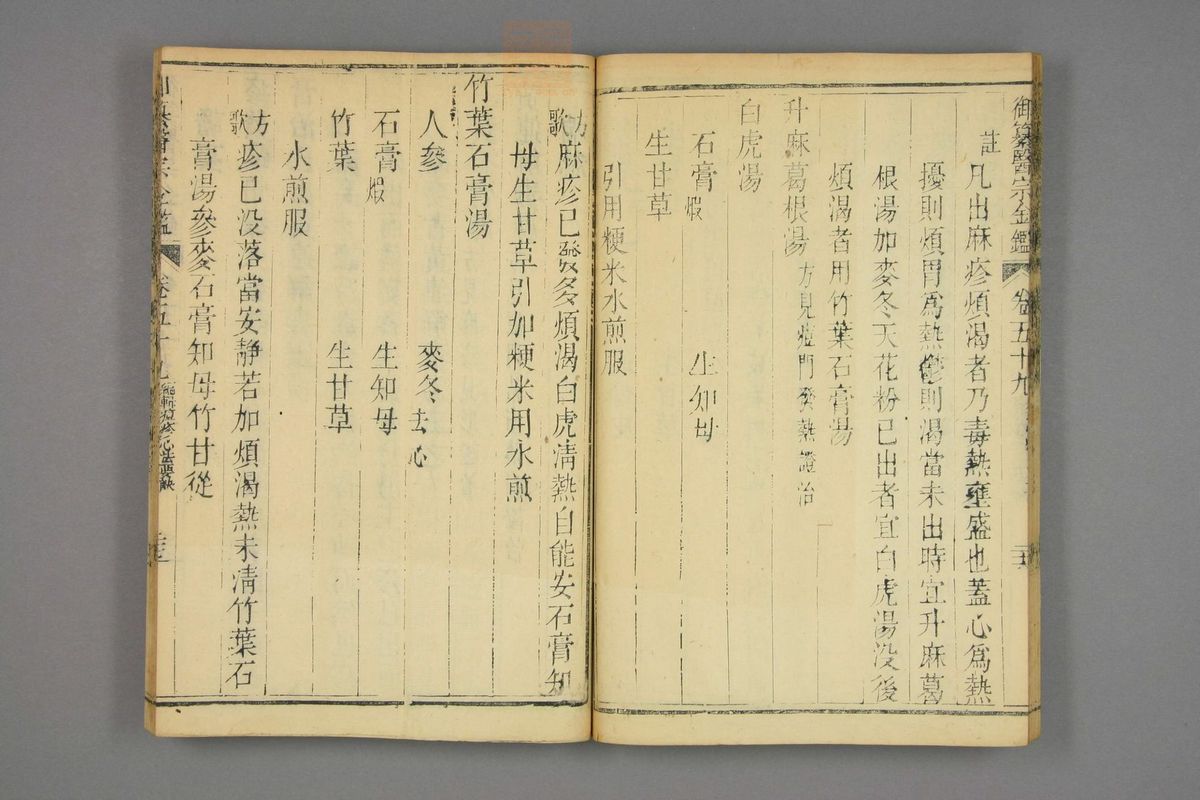 御纂醫宗金鑑 卷五十九
註
凡出麻疹煩渴者乃毒熱壅盛也蓋心爲熱
擾則煩胃爲熱鬱則渴當未出時宜升麻葛
根湯加麥冬天花粉已出者宜白虎湯没後
煩渴者用竹葉石膏湯
升麻葛根湯 方見痘門發熱證治
白虎湯
石膏 煆 生知母
生甘草
引用粳米水煎服
方歌 麻疹已發多煩渴白虎清熱自能安石膏知
母生甘草引加粳米用水煎
竹葉石膏湯
人參 麥冬 去心
石膏 煆 生知母
竹葉 生甘草
水煎服
方歌 疹已没落當安靜若加煩渴熱未清竹葉石
膏湯參麥石膏知母竹甘從
卷五十九